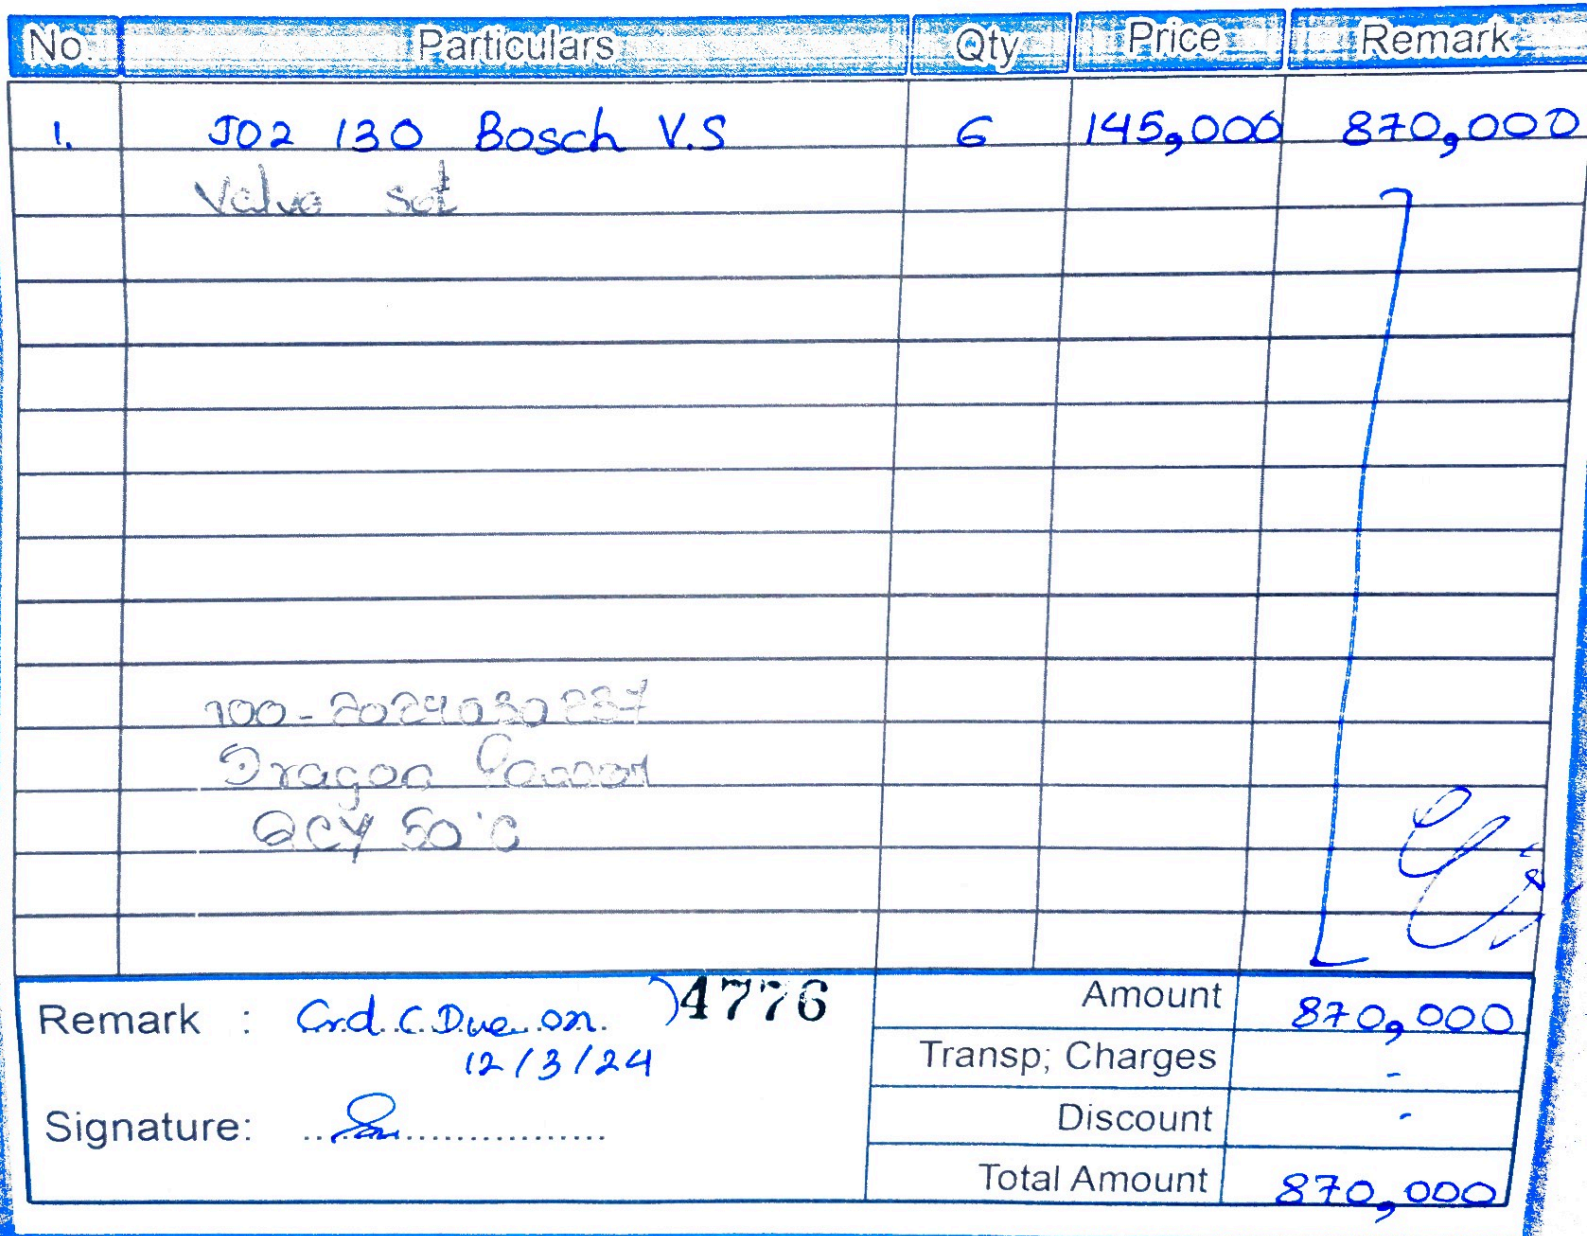 No. Particulars Qty Price Remark
1. J02 130 Bosch V.S 6 145,000 870,000
Valve set
100-2024030237
Dragon
QCY 50'C
Remark : Crd. C. Due on. 4776
12/3/24
Signature:
Amount 870,000
Transp; Charges -
Discount -
Total Amount 870,000